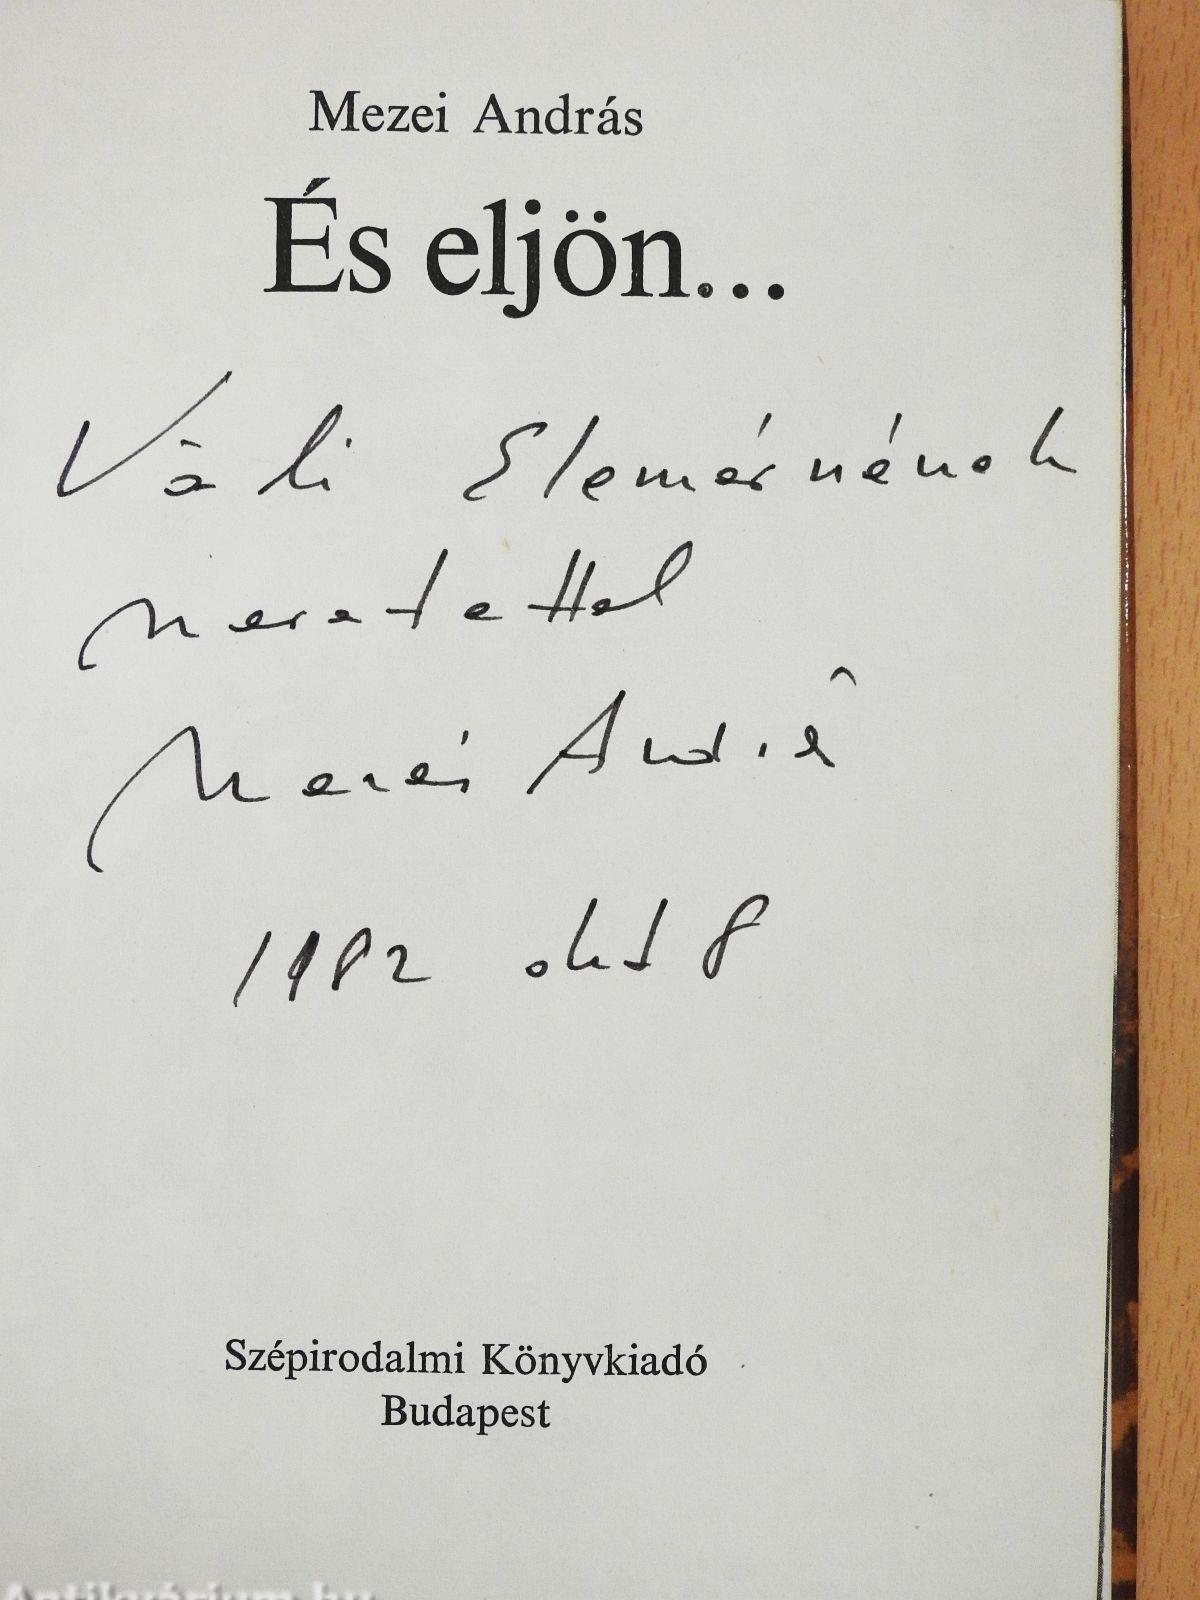 Mezei András
És eljön...
Váli Elemérnének
szeretettel
Mezei András
1982 okt 8
Szépirodalmi Könyvkiadó
Budapest
Antikvárium.hu